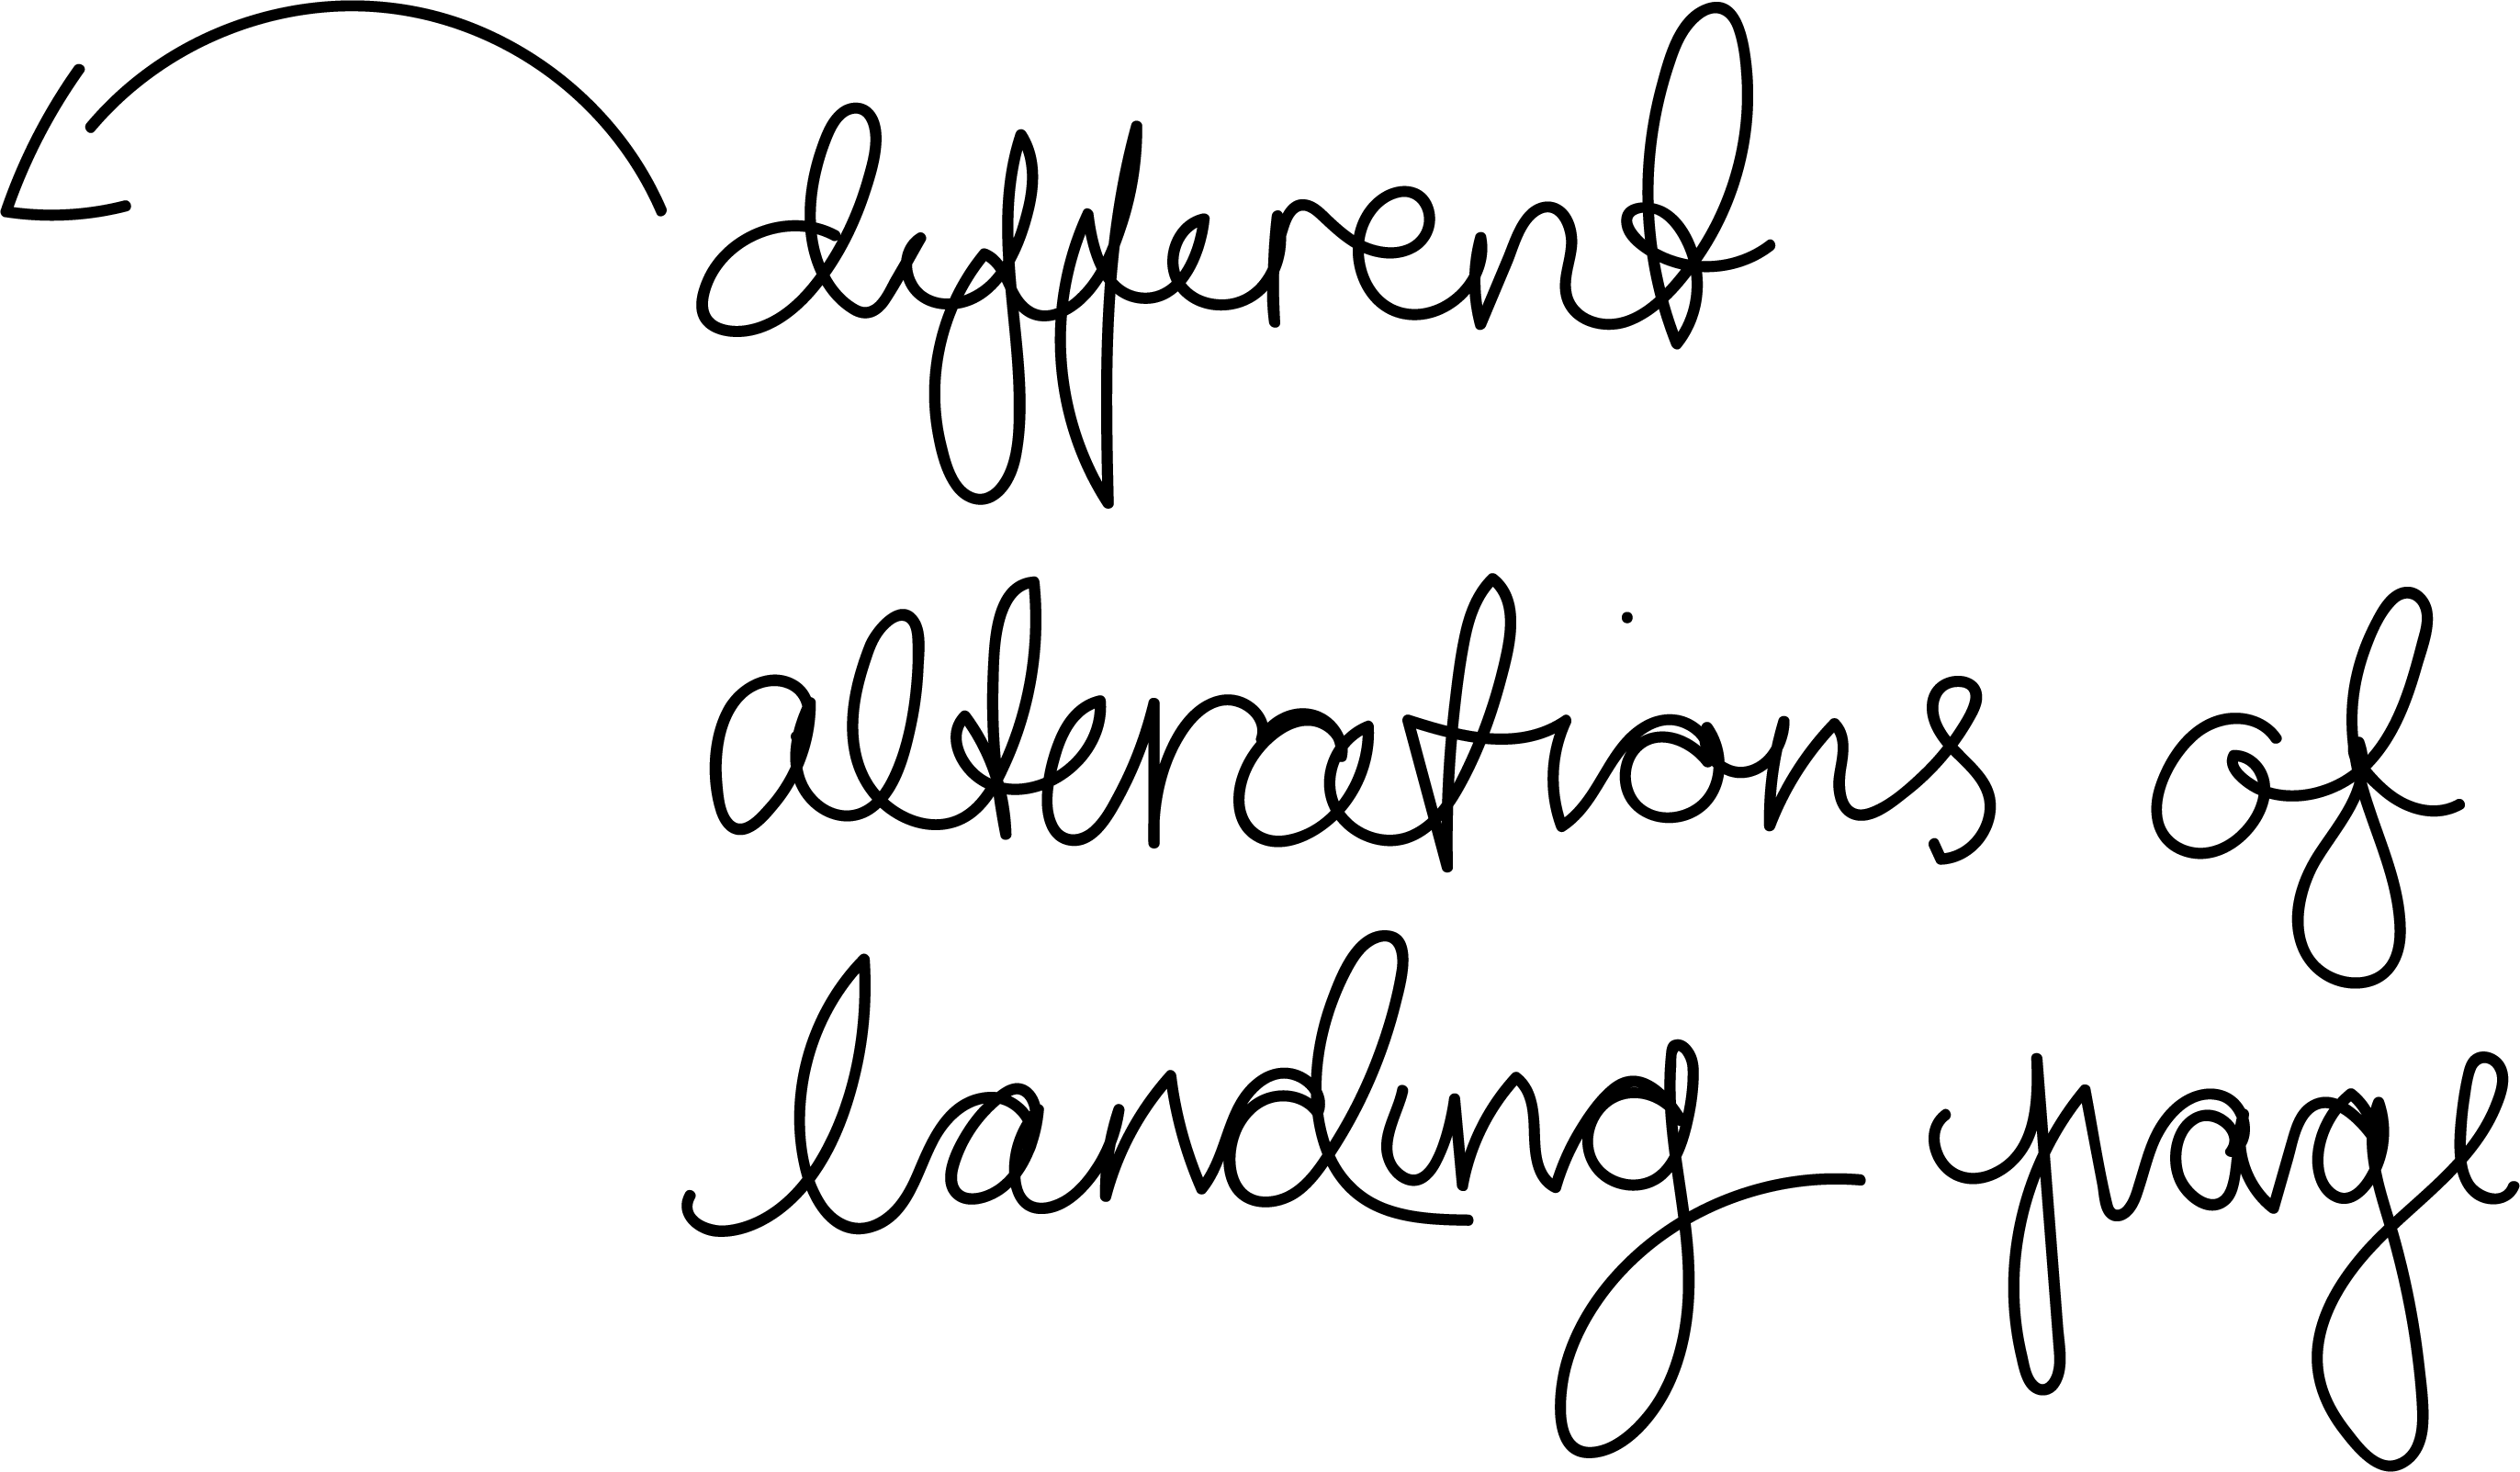 different
alterations of
landing page